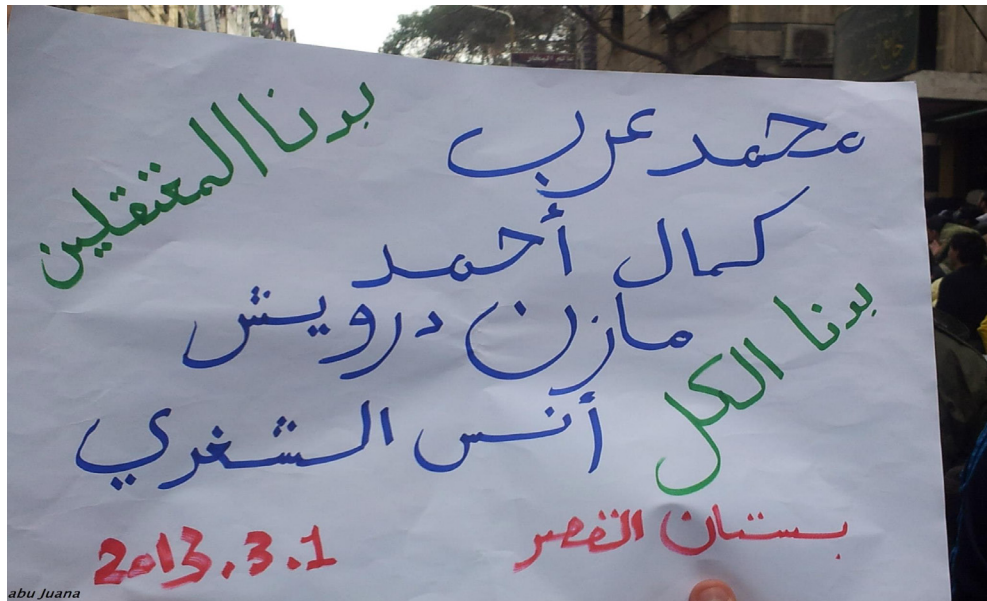 بدنا المعتقلين
محمد عرب
كمال أحمد
مازن درويش
أنس الشغري
بدنا الكل
بستان القصر
2013.3.1
abu Juana